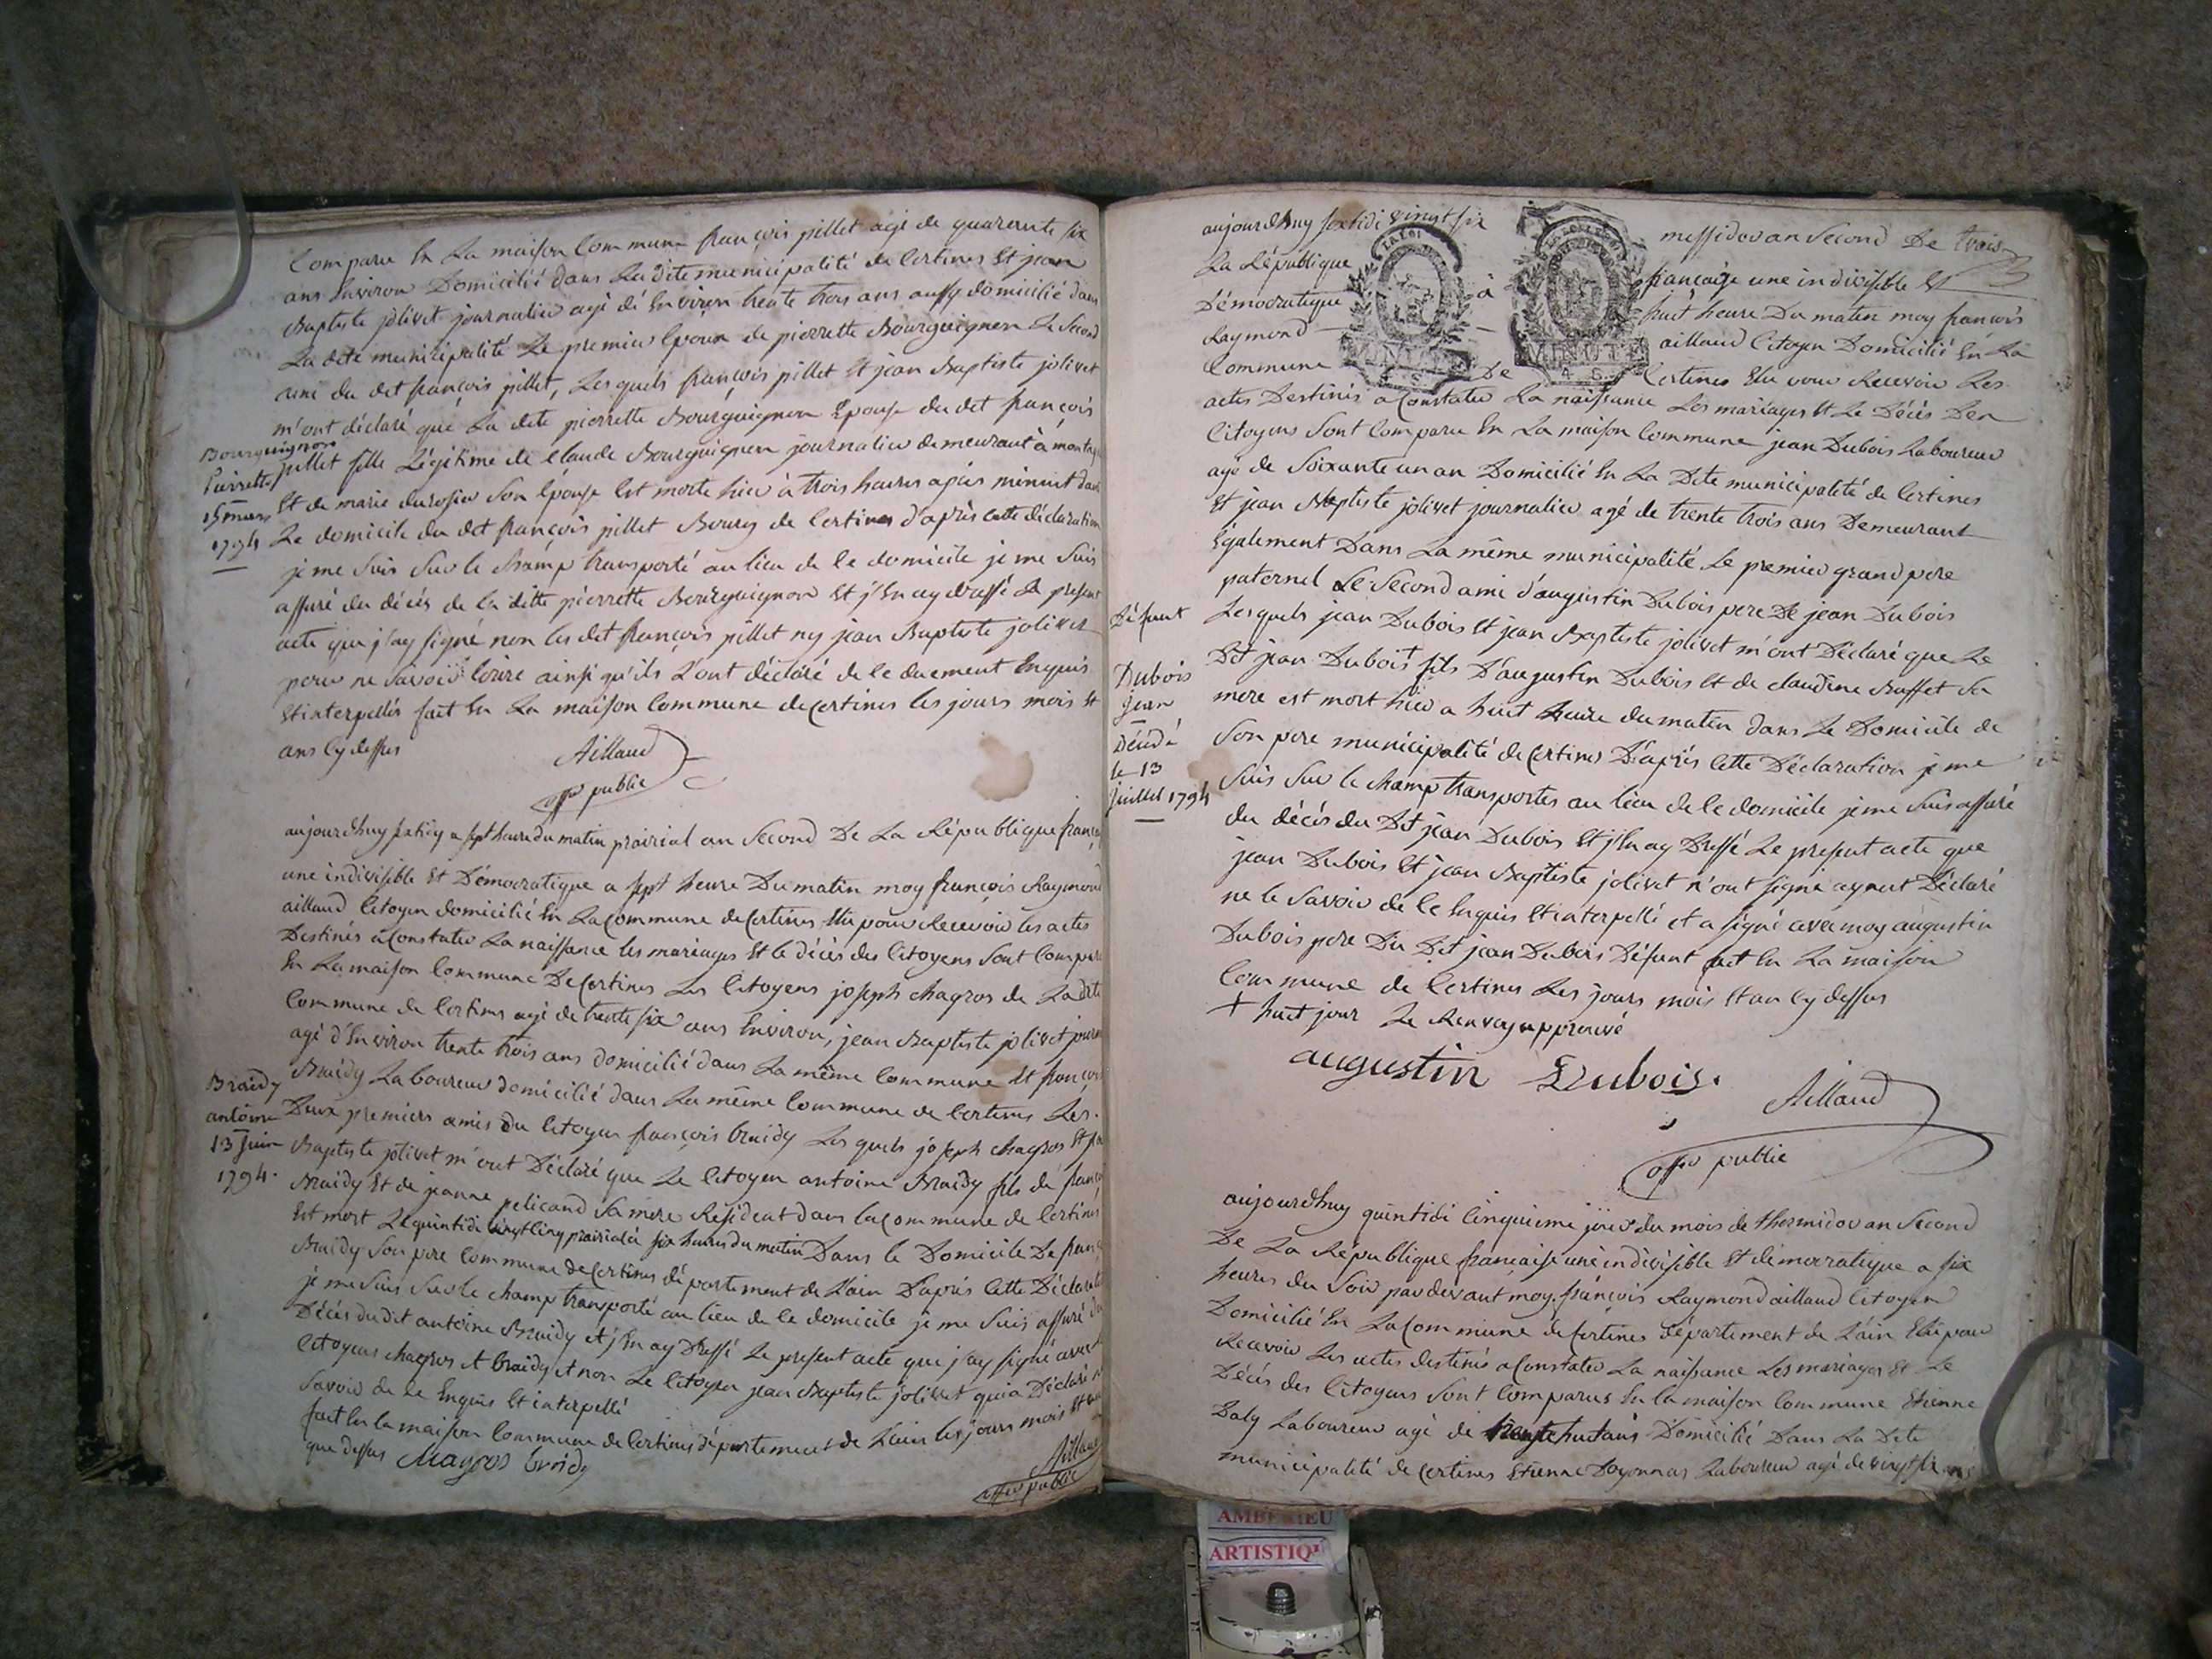 Comparu En La maison Commune françois pillet agé de quarente six
ans Environ Domicilié dans La dite municipalité de Certines Et jean
Baptiste jolivet journalier agé de Environ trente trois ans aussy domicilié dans
La dite municipalité Le premier Epoux de pierrette Bourguignon Le Second
ami du dit françois pillet, Lesquels françois pillet Et jean Baptiste jolivet
m'ont déclaré que La dite pierrette Bourguignon Epouse du dit françois
pillet fille Légitime de Claude Bourguignon journalier demeurant à
Et de marie durosier Son Epouse Est morte hier à trois heures apres minuit dans
Le domicile du dit françois pillet Bourg de Certines d'après cette déclaration
je me Suis Sur le Champ transporté au lieu de Ce domicile je me Suis
assuré du décés de la ditte pierrette Bourguignon Et j'En ay dressé Le present
acte que j'ay signé non les dit françois pillet ny jean Baptiste jolivet
pour ne Savoir Ecrire ainsi qu'ils L'ont déclaré de Ce duement Enquis
Et interpellés fait En La maison Commune de Certines les jours mois Et
ans Cy dessus
Aillaud
offer public
Bourguignon
Pierrette
15 mars
1794
aujourdhuy a sept heure du matin prairial an Second De La République
une indivisible Et Démocratique a sept heure Du matin moy françois Raymond
aillaud Citoyen domicilié En La Commune de Certines Elu pour Recevoir les actes
Destinés a Constater La naissance les mariages Et le décés des Citoyens Sont Comparu
En La maison Commune De Certines Les Citoyens joseph chagros de La dite
Commune de Certines agé de trente six ans Environ, jean Baptiste jolivet
agé d'Environ trente trois ans domicilié dans La même Commune Et françois
Braidy Laboureur domicilié dans La même Commune de Certines Les
Deux premiers amis du Citoyen françois braidy Lesquels joseph chagros Et
Baptiste jolivet m'ont Déclaré que Le Citoyen antoine Braidy fils de
Braidy Et de jeanne pelicand Sa mere Résident dans la Commune de Certines
Est mort Le quintidi vingt Cinq prairial à six heures du matin Dans le Domicile De
Braidy Son pere Commune de Certines département de L'ain D'aprés Cette
je me Suis Sur le champ transporté au lieu de Ce domicile je me Suis assuré du
Décés du dit antoine Braidy Et j'En ay Dressé Le present acte que j'ay signé avec
Citoyens chagros Et braidy Et non Le Citoyen jean Baptiste jolivet qui a Déclaré
Savoir de Ce Enquis Et interpellé
fait En la maison Commune de Certines département de L'ain les jours mois Et
que dessus Chagros braidy
Aillaud
offer public
Braidy
antoine
13 Juin
1794.
aujourdhuy vingt six messidor an Second De trois
La République française une indivisible Et
Démocratique à huit heure Du matin moy françois
Raymond aillaud Citoyen Domicilié En La
Commune De Certines Elu pour Recevoir Les
actes Destinés a Constater La naissance Les mariages Et Le Décés Des
Citoyens Sont Comparu En La maison Commune jean Dubois Laboureur
agé de Soixante un an Domicilié En La Dite municipalité de Certines
Et jean Baptiste jolivet journalier agé de trente trois ans Demeurant
Egalement Dans La même municipalité Le premier grand pere
paternel Le Second ami d'augustin Dubois pere De jean Dubois
Défunt Lesquels jean Dubois Et jean Baptiste jolivet m'ont Déclaré que Le
Dit jean Dubois + fils D'augustin Dubois Et de claudine Buffet Sa
mere est mort hier a huit heure du matin dans Le Domicile de
Son pere municipalité de Certines D'aprés Cette Déclaration je me
Suis Sur le champ transportes au lieu de Ce domicile je me Suis assuré
du décés du Dit jean Dubois Et j'En ay Dressé Le present acte que
jean Dubois Et jean Baptiste jolivet n'ont signé ayant Déclaré
ne le Savoir de Ce Enquis Et interpellé et a signé avec moy augustin
Dubois pere Du Dit jean Dubois Défunt fait En La maison
Commune de Certines Les jours mois Et an Cy dessus
+ huit jour Le Renvoy approuvé
augustin Dubois.
Aillaud
offer public
Dubois
Jean
Décédé
le 13
Juillet 1794
aujourdhuy quintidi Cinquieme jour du mois de thermidor an Second
De La République française une indivisible Et démocratique a six
heures du Soir pardevant moy françois Raymond aillaud Citoyen
Domicilié En La Commune de Certines département de L'ain Elu pour
Recevoir Les actes destinés a Constater La naissance Les mariages Et Le
Décés des Citoyens Sont Comparus En la maison Commune Etienne
Laboureur agé de trente huit ans Domicilié Dans La Dite
municipalité de Certines Etienne Doyonnas Laboureur agé de vingt six ans
LA LOI
MINUTE
AMBERIEU
ARTISTIQ